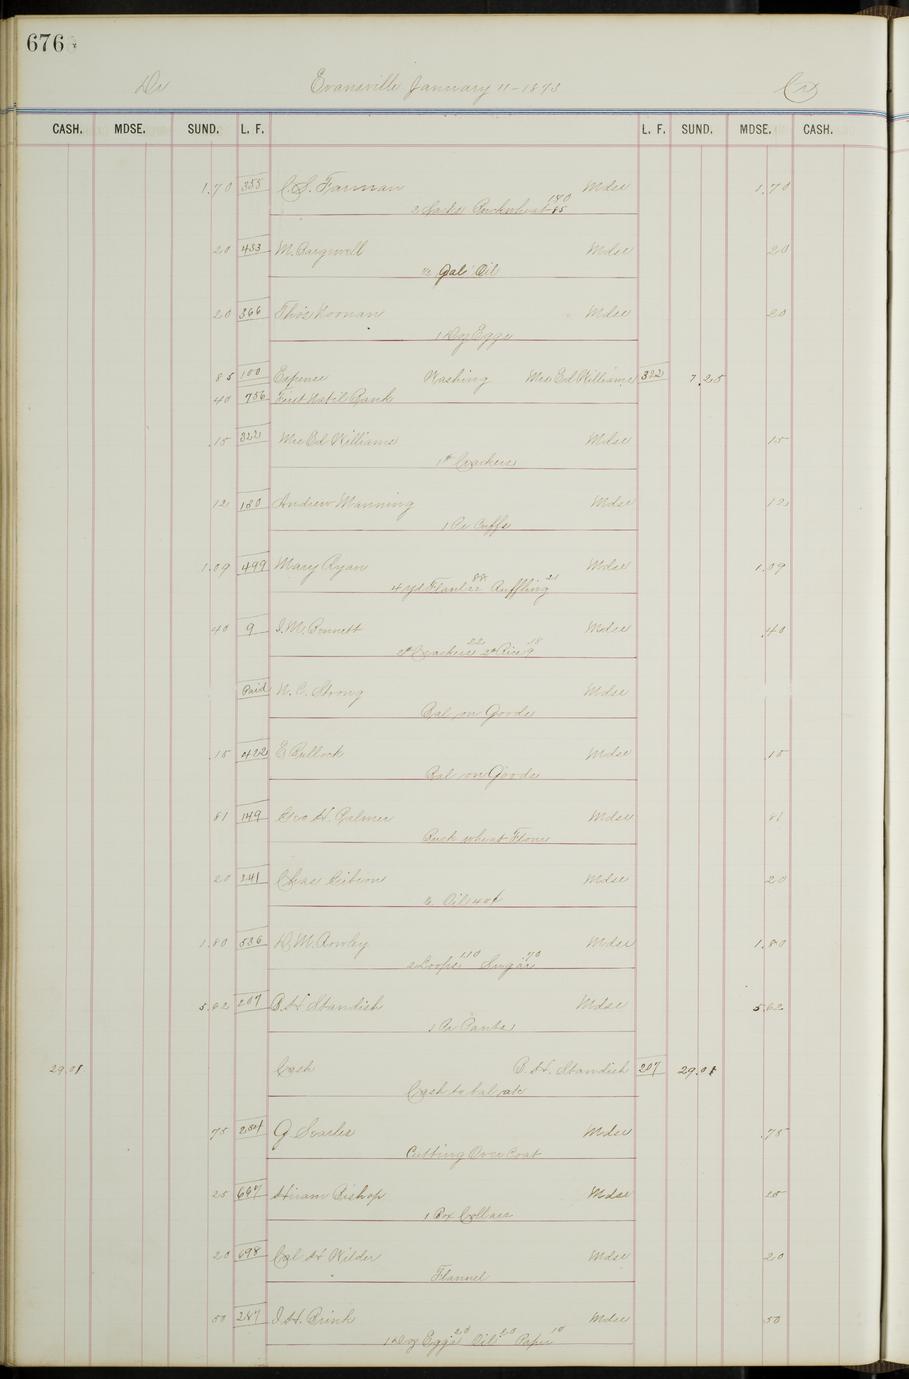 676
Dr Evansville January 11-1873 Cr
CASH. MDSE. SUND. L. F. L. F. SUND. MDSE. CASH.
1.70 355 C.S. Farman Mdse 1.70
2 Sacks Buckwheat 85 170
20 433 M. Mdse 20
Gal Oil
20 366 Thos Noonan Mdse 20
1 Dz Eggs
85 100 Expense Washing Mrs Ed Williams 322 7.25
40 756 First Nat'l Bank
.15 322 Mrs Ed Williams Mdse 15
1# Crackers
12 180 Andrew Manning Mdse 12
1 Pr Cuffs
1.09 499 Mary Ryan Mdse 1.09
4 yd Flanl 22 88 Ruffling 21
40 9 I.M. Bennett Mdse .40
2# Crackers 22 2# Rice 9 18
Paid N. C. Strong Mdse
Bal on Goods
.15 422 E Bullock Mdse .15
Bal on Goods
81 149 Geo H. Palmer Mdse 81
Buck wheat Flour
20 241 Chas Mdse 20
Oil 40¢
1.80 536 D. M. Rowley Mdse 1.80
2 Loops 110 Sugar 70
5.62 207 B.H. Standish Mdse 5.62
1 Pr Pants
29.01 Cash B.H. Standish 207 29.01
Cash to bal a/c
75 284 G Searles Mdse .75
Cutting Over Coat
25 667 Hiram Bishop Mdse 25
1 Box Collars
20 698 Cal H Wilder Mdse 20
Flannel
50 287 J.H. Brink Mdse 50
1 Doz Eggs 20 Oil 20 Paper 10